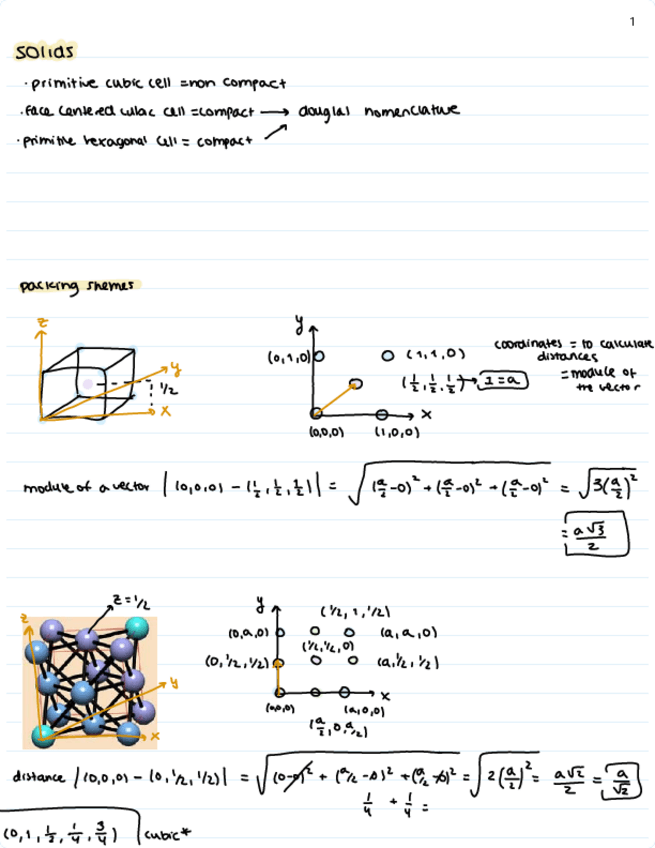 1
solids
· primitive cubic cell = non compact
· face centered cubic cell = compact → douglas nomenclature
· primitive hexagonal cell = compact
packing shemes
z
y
x
1/2
y
(0,1,0)
(1,1,0)
(1/2, 1/2, 1/2) → 1=a
x
(0,0,0)
(1,0,0)
coordinates = to calculate
distances
= module of
the vector
module of a vector | (0,0,0) - (1/2, 1/2, 1/2) | = √((a/2-0)² + (a/2-0)² + (a/2-0)²) = √(3(a/2)²)
= a√3/2
z=1/2
z
y
x
y
(1/2, 1, 1/2)
(0,a,0)
(a,a,0)
(1/2,1/2,0)
(0,1/2,1/2)
(a,1/2,1/2)
x
(0,0,0)
(a,0,0)
(a/2,0,a/2)
distance | (0,0,0) - (0,1/2,1/2) | = √((0-0)² + (a/2-0)² + (a/2-0)²) = √(2(a/2)²) = a√2/2 = a/√2
1/4 + 1/4 =
(0,1,1/2,1/4,3/4) cubic*